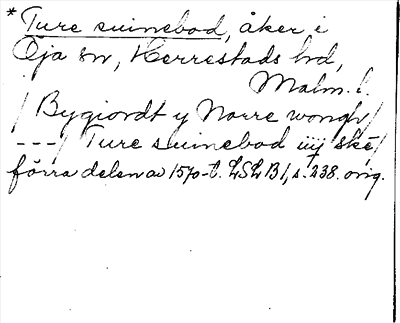 * Ture suinebod, åker i
Öja sn, Herrestads hd,
Malm. l.
/ Bygiordt y Norre wongh /
---/ Ture suinebod iiij ske /
förra delen av 1570-t. LSLB 1, s. 238. orig.